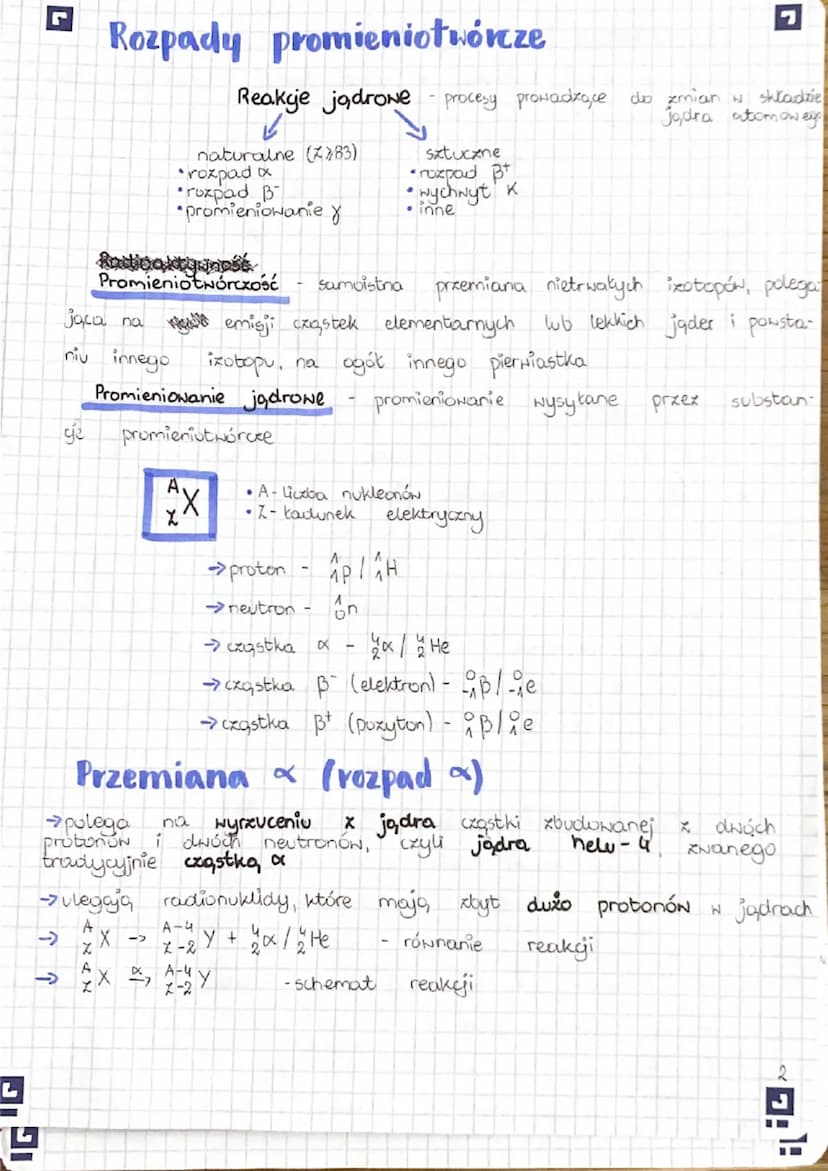 Rozpady promieniotwórcze
Reakcje jądrowe - procesy prowadzące do zmian w składzie
jądra atomowego
naturalne (Z≥83)
•rozpad α
•rozpad β⁻
•promieniowanie γ
sztuczne
•rozpad β⁺
•wychwyt K
•inne
Radioaktywność
Promieniotwórczość - samoistna przemiana nietrwałych izotopów, polega-
jąca na emisji cząstek elementarnych lub lekkich jąder i powsta-
niu innego izotopu, na ogół innego pierwiastka
Promieniowanie jądrowe - promieniowanie wysyłane przez substan-
cje promieniotwórcze
ᴬ_Z X
• A - liczba nukleonów
• Z - ładunek elektryczny
→ proton - ¹₁p / ¹₁H
→ neutron - ¹₀n
→ cząstka α - ⁴₂α / ⁴₂He
→ cząstka β⁻ (elektron) - ⁰₋₁β / ⁰₋₁e
→ cząstka β⁺ (pozyton) - ⁰₁β / ⁰₁e
Przemiana α (rozpad α)
→ polega na wyrzuceniu z jądra cząstki zbudowanej z dwóch
protonów i dwóch neutronów, czyli jądra helu-4, zwanego
tradycyjnie cząstką α
→ ulegają radionuklidy, które mają zbyt dużo protonów w jądrach
→ ᴬ_Z X -> ᴬ⁻⁴_Z₋₂ Y + ⁴₂α / ⁴₂He - równanie reakcji
→ ᴬ_Z X -α-> ᴬ⁻⁴_Z₋₂ Y - schemat reakcji
2